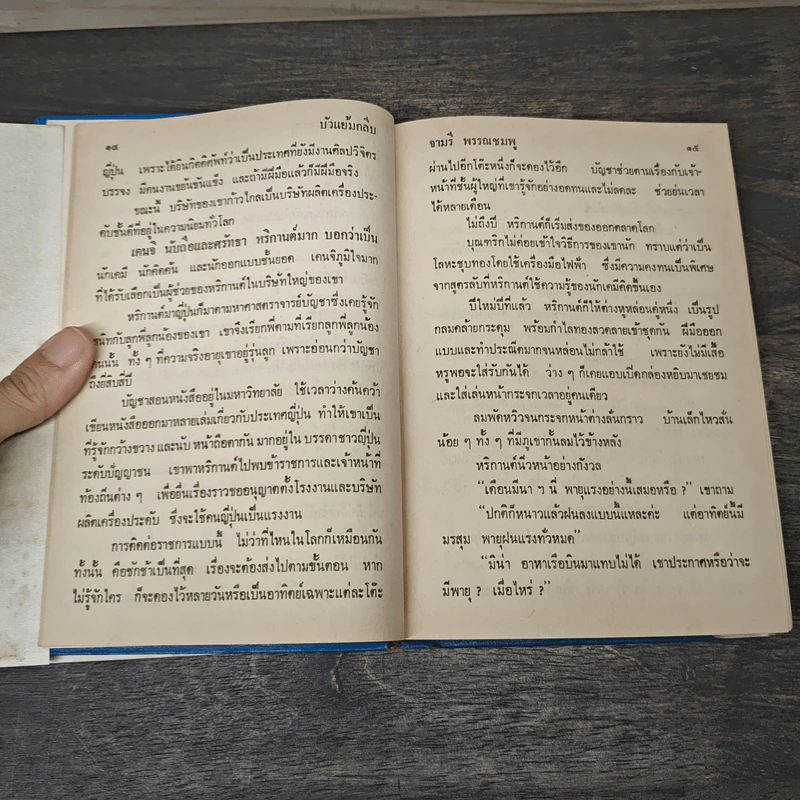 ๑๔ บัวแย้มกลีบ
ญี่ปุ่น เพราะได้ยินกิตติศัพท์ว่าเป็นประเทศที่ยังมีงานศิลปวิจิตร
บรรจง มีคนงานขยันขันแข็ง และถ้ามีฝีมือแล้วก็มีฝีมือจริง
ขณะนี้ บริษัทของเขาก้าวไกลเป็นบริษัทผลิตเครื่องประ-
ดับชั้นดีที่อยู่ในความนิยมทั่วโลก
เคนจิ นับถือและศรัทธา หริกานต์มาก บอกว่าเป็น
นักเคมี นักคิดค้น และนักออกแบบชั้นยอด เคนจิภูมิใจมาก
ที่ได้รับเลือกเป็นผู้ช่วยของหริกานต์ในบริษัทใหญ่ของเขา
หริกานต์มาญี่ปุ่นก็มาตามหาศาสตราจารย์บัญชาซึ่งเคยรู้จัก
สนิทกับลูกพี่ลูกน้องของเขา เขาจึงเรียกพี่ตามที่เรียกลูกพี่ลูกน้อง
คนนั้น ทั้ง ๆ ที่ความจริงอายุเขาอยู่รุ่นลูก เพราะอ่อนกว่าบัญชา
ถึงยี่สิบสี่ปี
บัญชาสอนหนังสืออยู่ในมหาวิทยาลัย ใช้เวลาว่างค้นคว้า
เขียนหนังสือออกมาหลายเล่มเกี่ยวกับประเทศญี่ปุ่น ทำให้เขาเป็น
ที่รู้จักกว้างขวาง และนับ หน้าถือตากัน มากอยู่ใน บรรดา ชาวญี่ปุ่น
ระดับปัญญาชน เขาพาหริกานต์ไปพบข้าราชการและเจ้าหน้าที่
ท้องถิ่นต่าง ๆ เพื่อยื่นเรื่องราวขออนุญาตตั้งโรงงานและบริษัท
ผลิตเครื่องประดับ ซึ่งจะใช้คนญี่ปุ่นเป็นแรงงาน
การติดต่อราชการแบบนี้ ไม่ว่าที่ไหนในโลกก็เหมือนกัน
ทั้งนั้น คือชักช้าเป็นที่สุด เรื่องจะต้องส่งไปตามขั้นตอน หาก
ไม่รู้จักใคร ก็จะดองไว้หลายวันหรือเป็นอาทิตย์เฉพาะแต่ละโต๊ะ
จามรี พรรณชมพู ๑๕
ผ่านไปอีกโต๊ะหนึ่งก็จะดองไว้อีก บัญชาช่วยตามเรื่องกับเจ้า-
หน้าที่ชั้นผู้ใหญ่ที่เขารู้จักอย่างอดทนและไม่ลดละ ช่วยย่นเวลา
ได้หลายเดือน
ไม่ถึงปี หริกานต์ก็เริ่มส่งของออกตลาดโลก
บุณฑริกไม่ค่อยเข้าใจวิธีการของเขานัก ทราบแต่ว่าเป็น
โลหะชุบทองโดยใช้เครื่องมือไฟฟ้า ซึ่งมีความคงทนเป็นพิเศษ
จากสูตรลับที่หริกานต์ใช้ความรู้ของนักเคมีคิดขึ้นเอง
ปีใหม่ปีที่แล้ว หริกานต์ก็ให้ต่างหูหล่อนคู่หนึ่ง เป็นรูป
กลมคล้ายกระดุม พร้อมกำไลทองลวดลายเข้าชุดกัน ฝีมือออก
แบบและทำประณีตมากจนหล่อนไม่กล้าใช้ เพราะยังไม่มีเสื้อ
หรูพอจะใส่รับกันได้ ว่าง ๆ ก็เคยแอบเปิดกล่องหยิบมาเชยชม
และใส่เล่นหน้ากระจกเวลาอยู่คนเดียว
ลมพัดหวิวจนกระจกหน้าต่างลั่นกราว บ้านเล็กไหวสั่น
น้อย ๆ ทั้ง ๆ ที่มีภูเขากั้นลมไว้ข้างหลัง
หริกานต์นิ่วหน้าอย่างกังวล
“เดือนมีนา ฯ นี่ พายุแรงอย่างนี้เสมอหรือ ?” เขาถาม
“ปกติก็หนาวแล้วฝนลงแบบนี้แหละค่ะ แต่อาทิตย์นี้มี
มรสุม พายุฝนแรงทั่วหมด”
“มิน่า อาหาเรือบินมาแทบไม่ได้ เขาประกาศหรือว่าจะ
มีพายุ ? เมื่อไหร่ ?”